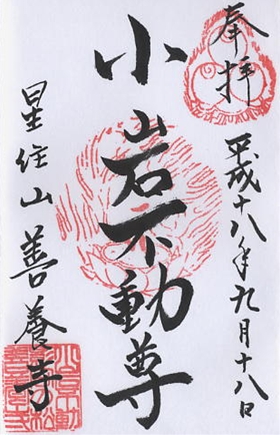 奉拝
平成十八年九月十八日
小岩不動尊
星住山 善養寺